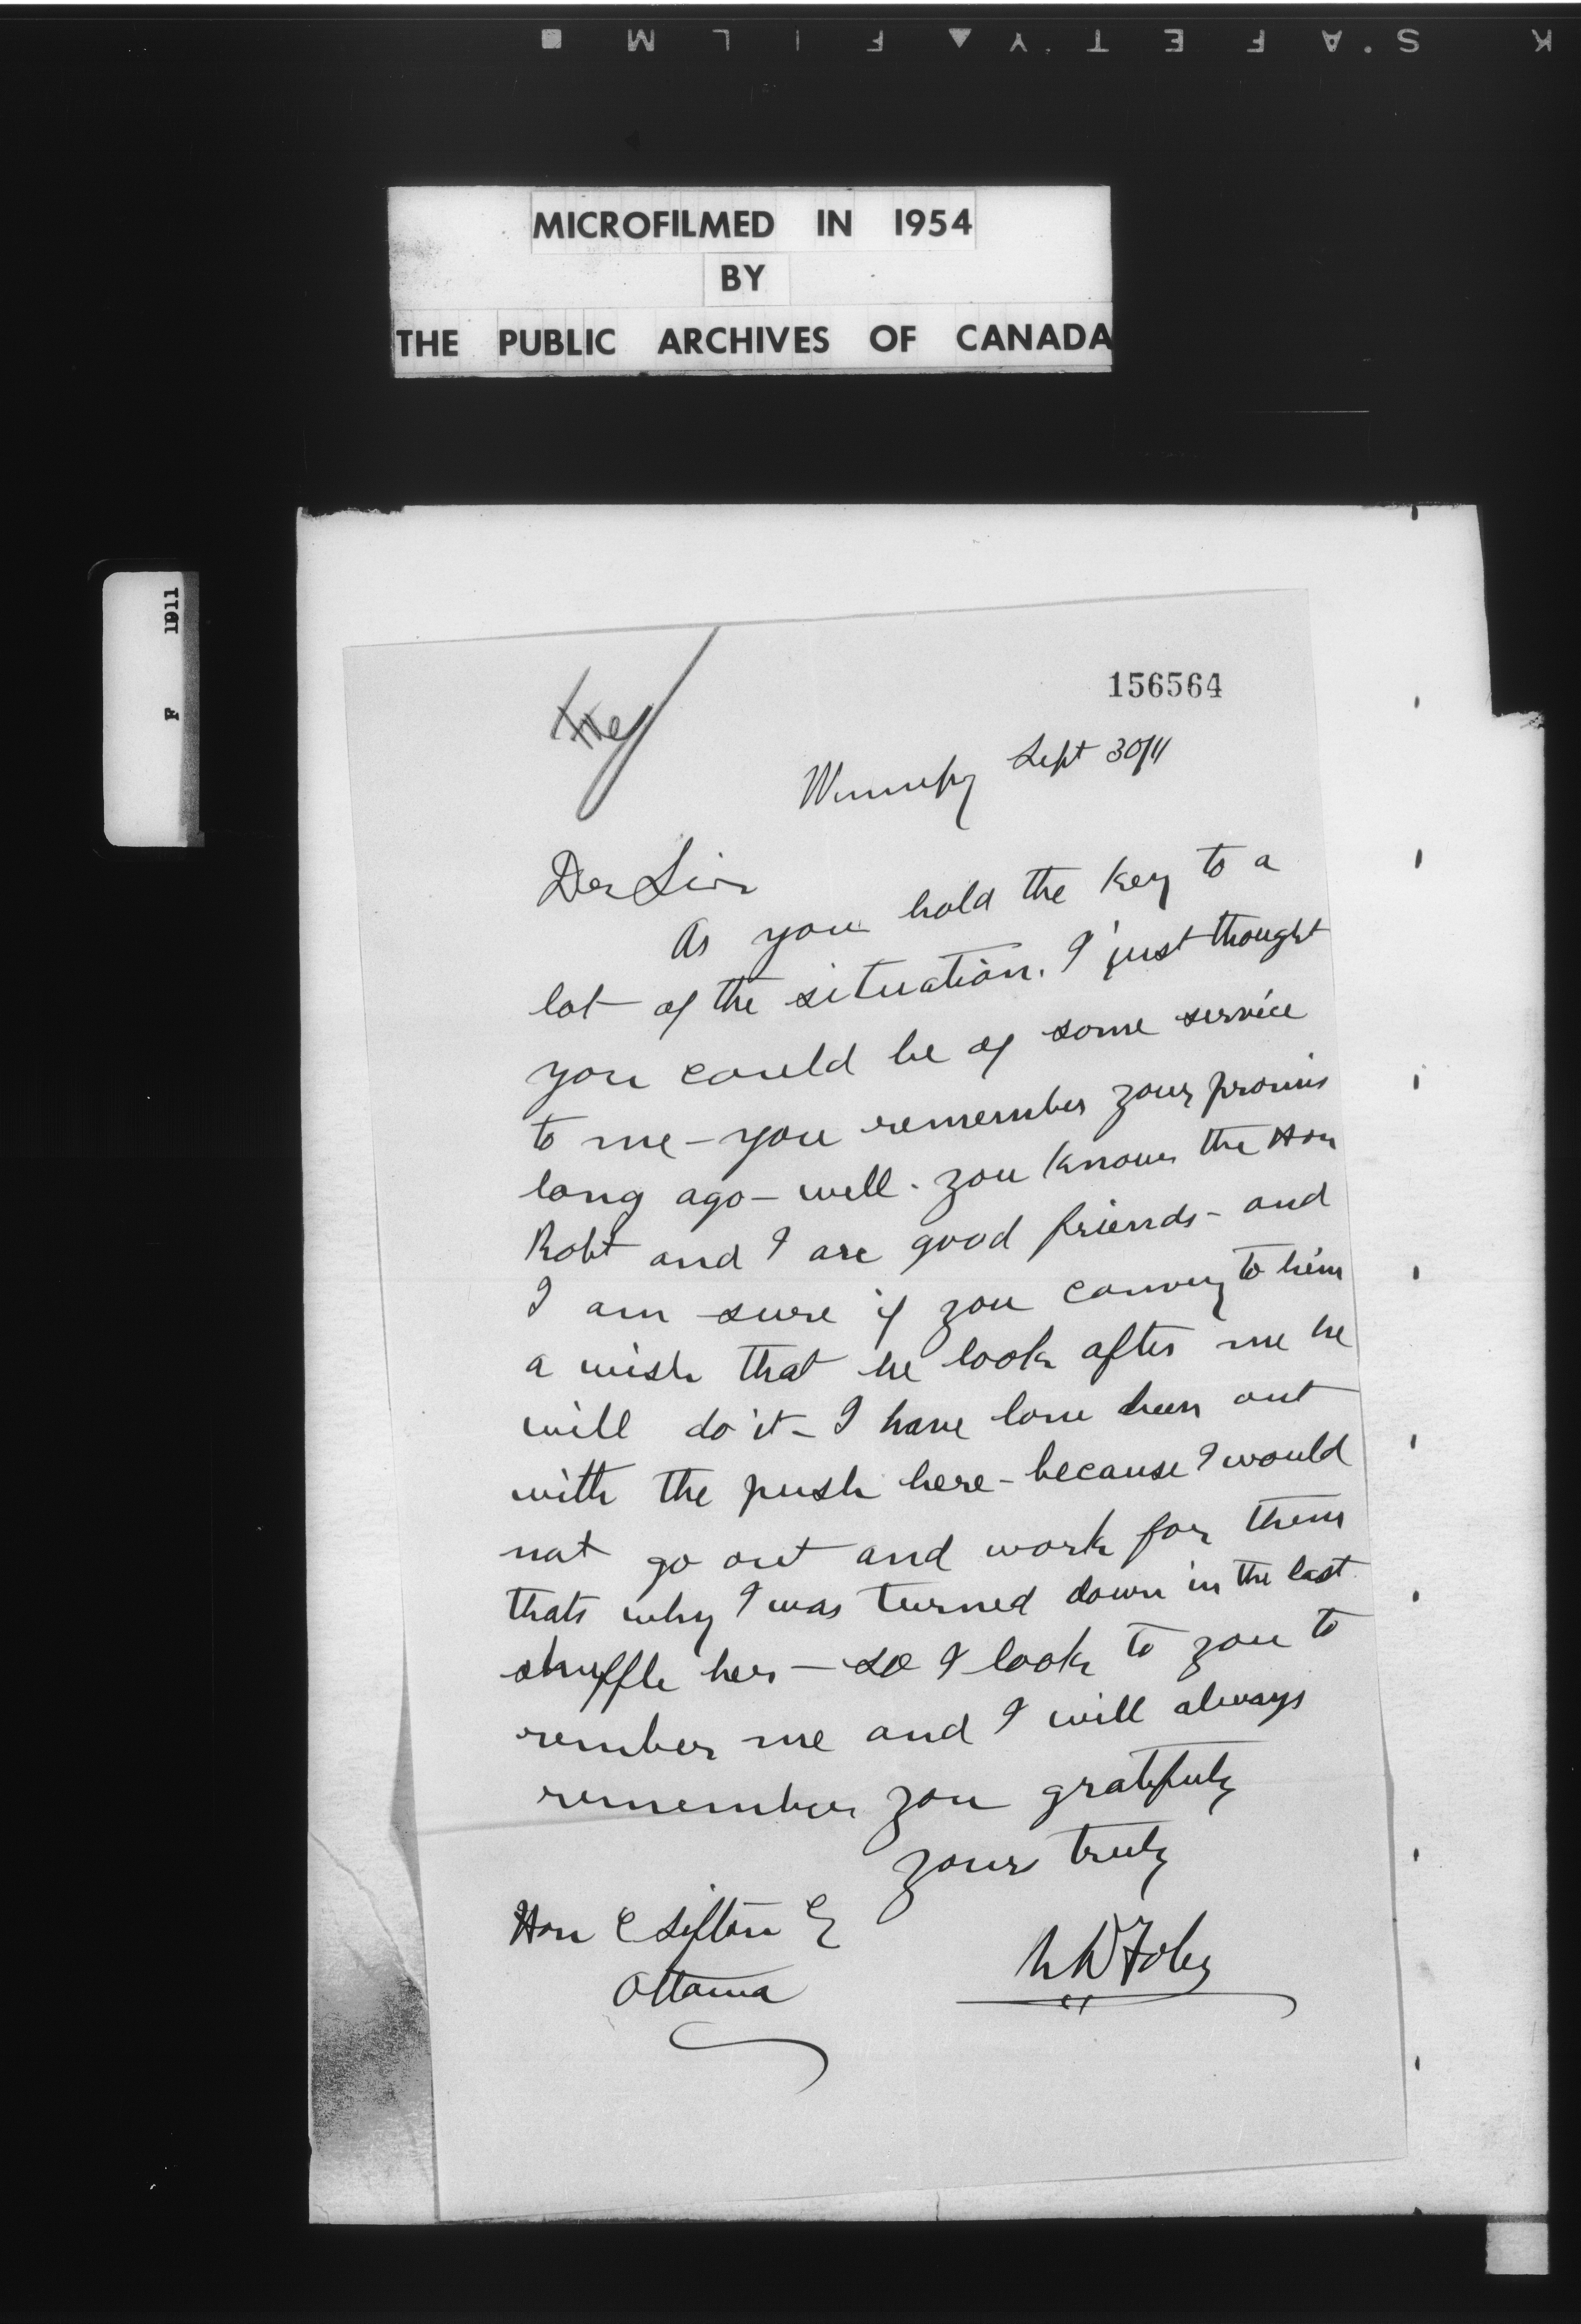 K S'A F E T Y ▲ F I L M ■
MICROFILMED IN 1954
BY
THE PUBLIC ARCHIVES OF CANADA
F 1911
156564
Winnipeg Sept 30/11
Der Sir
As you hold the key to a
lot of the situation. I just thought
you could be of some service
to me - you remember your promis
long ago - well. you know the Hon
Robt and I are good friends - and
I am sure if you convey to him
a wish that he look after me he
will do it - I have been out
with the push here - because I would
not go out and work for them
thats why I was turned down in the last
shuffle her - so I look to you to
rember me and I will always
remember you gratefuly
yours truly
Hon C Sifton
Ottawa
Foley